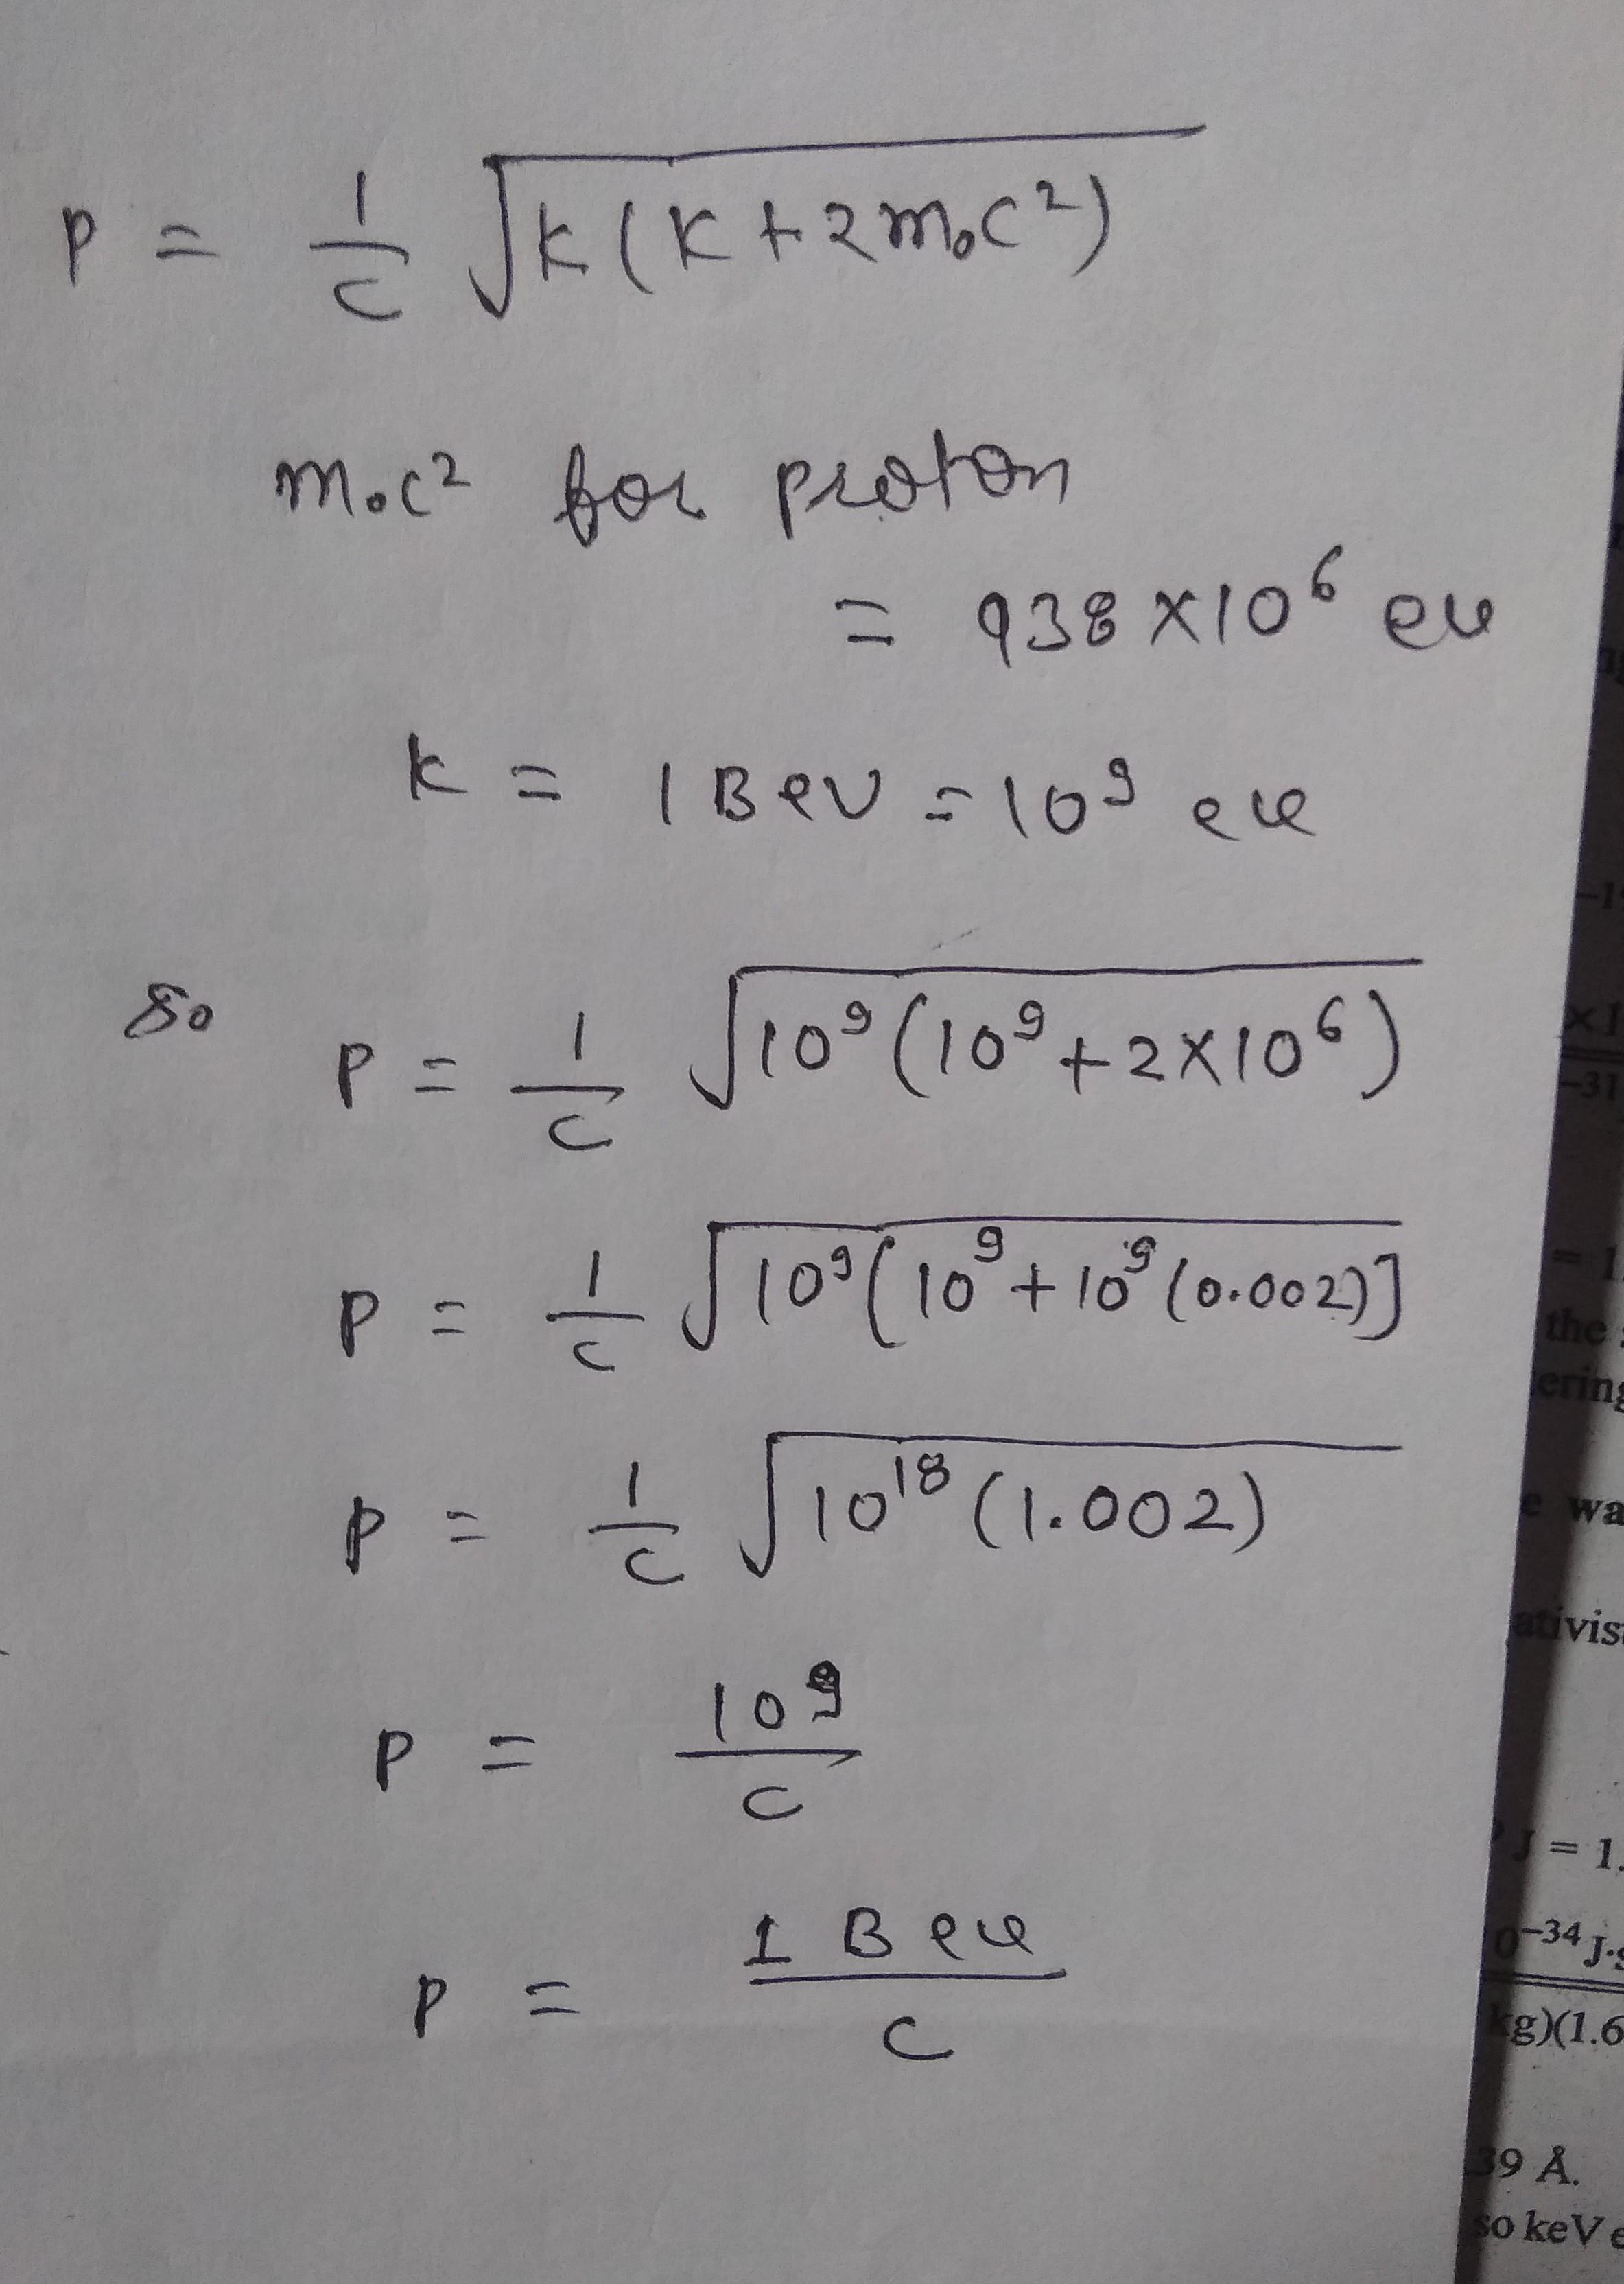 P = 1/c √K(K+2m₀c²)
m₀c² for proton
= 938×10⁶ ev
K = 1 Bev = 10⁹ ev
So P = 1/c √10⁹(10⁹+2×10⁶)
P = 1/c √10⁹[10⁹+10⁹(0.002)]
P = 1/c √10¹⁸(1.002)
P = 10⁹/c
P = 1 Bev/c
= 1
the
ering
wa
J = 1.
0⁻³⁴ J·s
kg)(1.6
39 Å.
so keV e